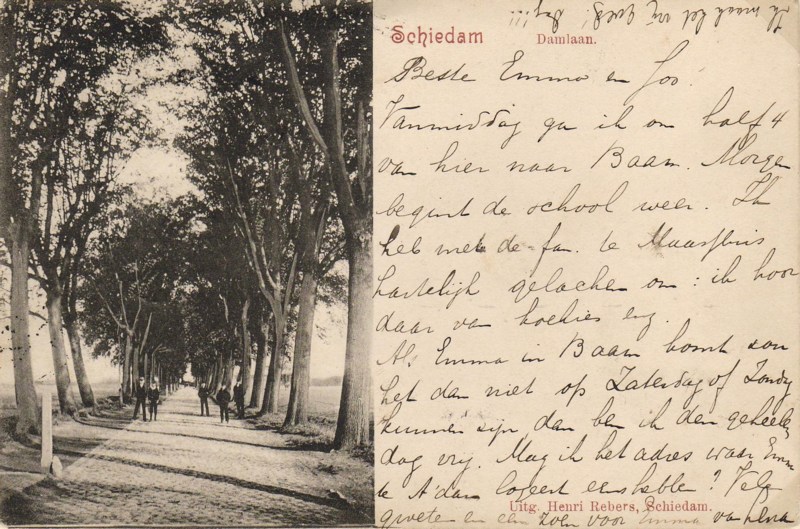 Ik maak het vrij goed! Dag!!!
Schiedam Damlaan.
Beste Emma en Joo.
Vanmiddag ga ik om half 4
van hier naar Baarn. Morgen
begint de school weer. Ik
heb met de fam. te Maassluis
hartelijk gelachen om: ik hoor
daar van koekies enz.
Als Emma in Baarn komt, zou
het dan niet op Zaterdag of Zondag
kunnen zijn, dan ben ik den geheelen
dag vrij. Mag ik het adres waar Emma
te A'dam logeert eens hebben? Vele
Uitg. Henri Rebers, Schiedam.
groeten en een zoen voor Emma van